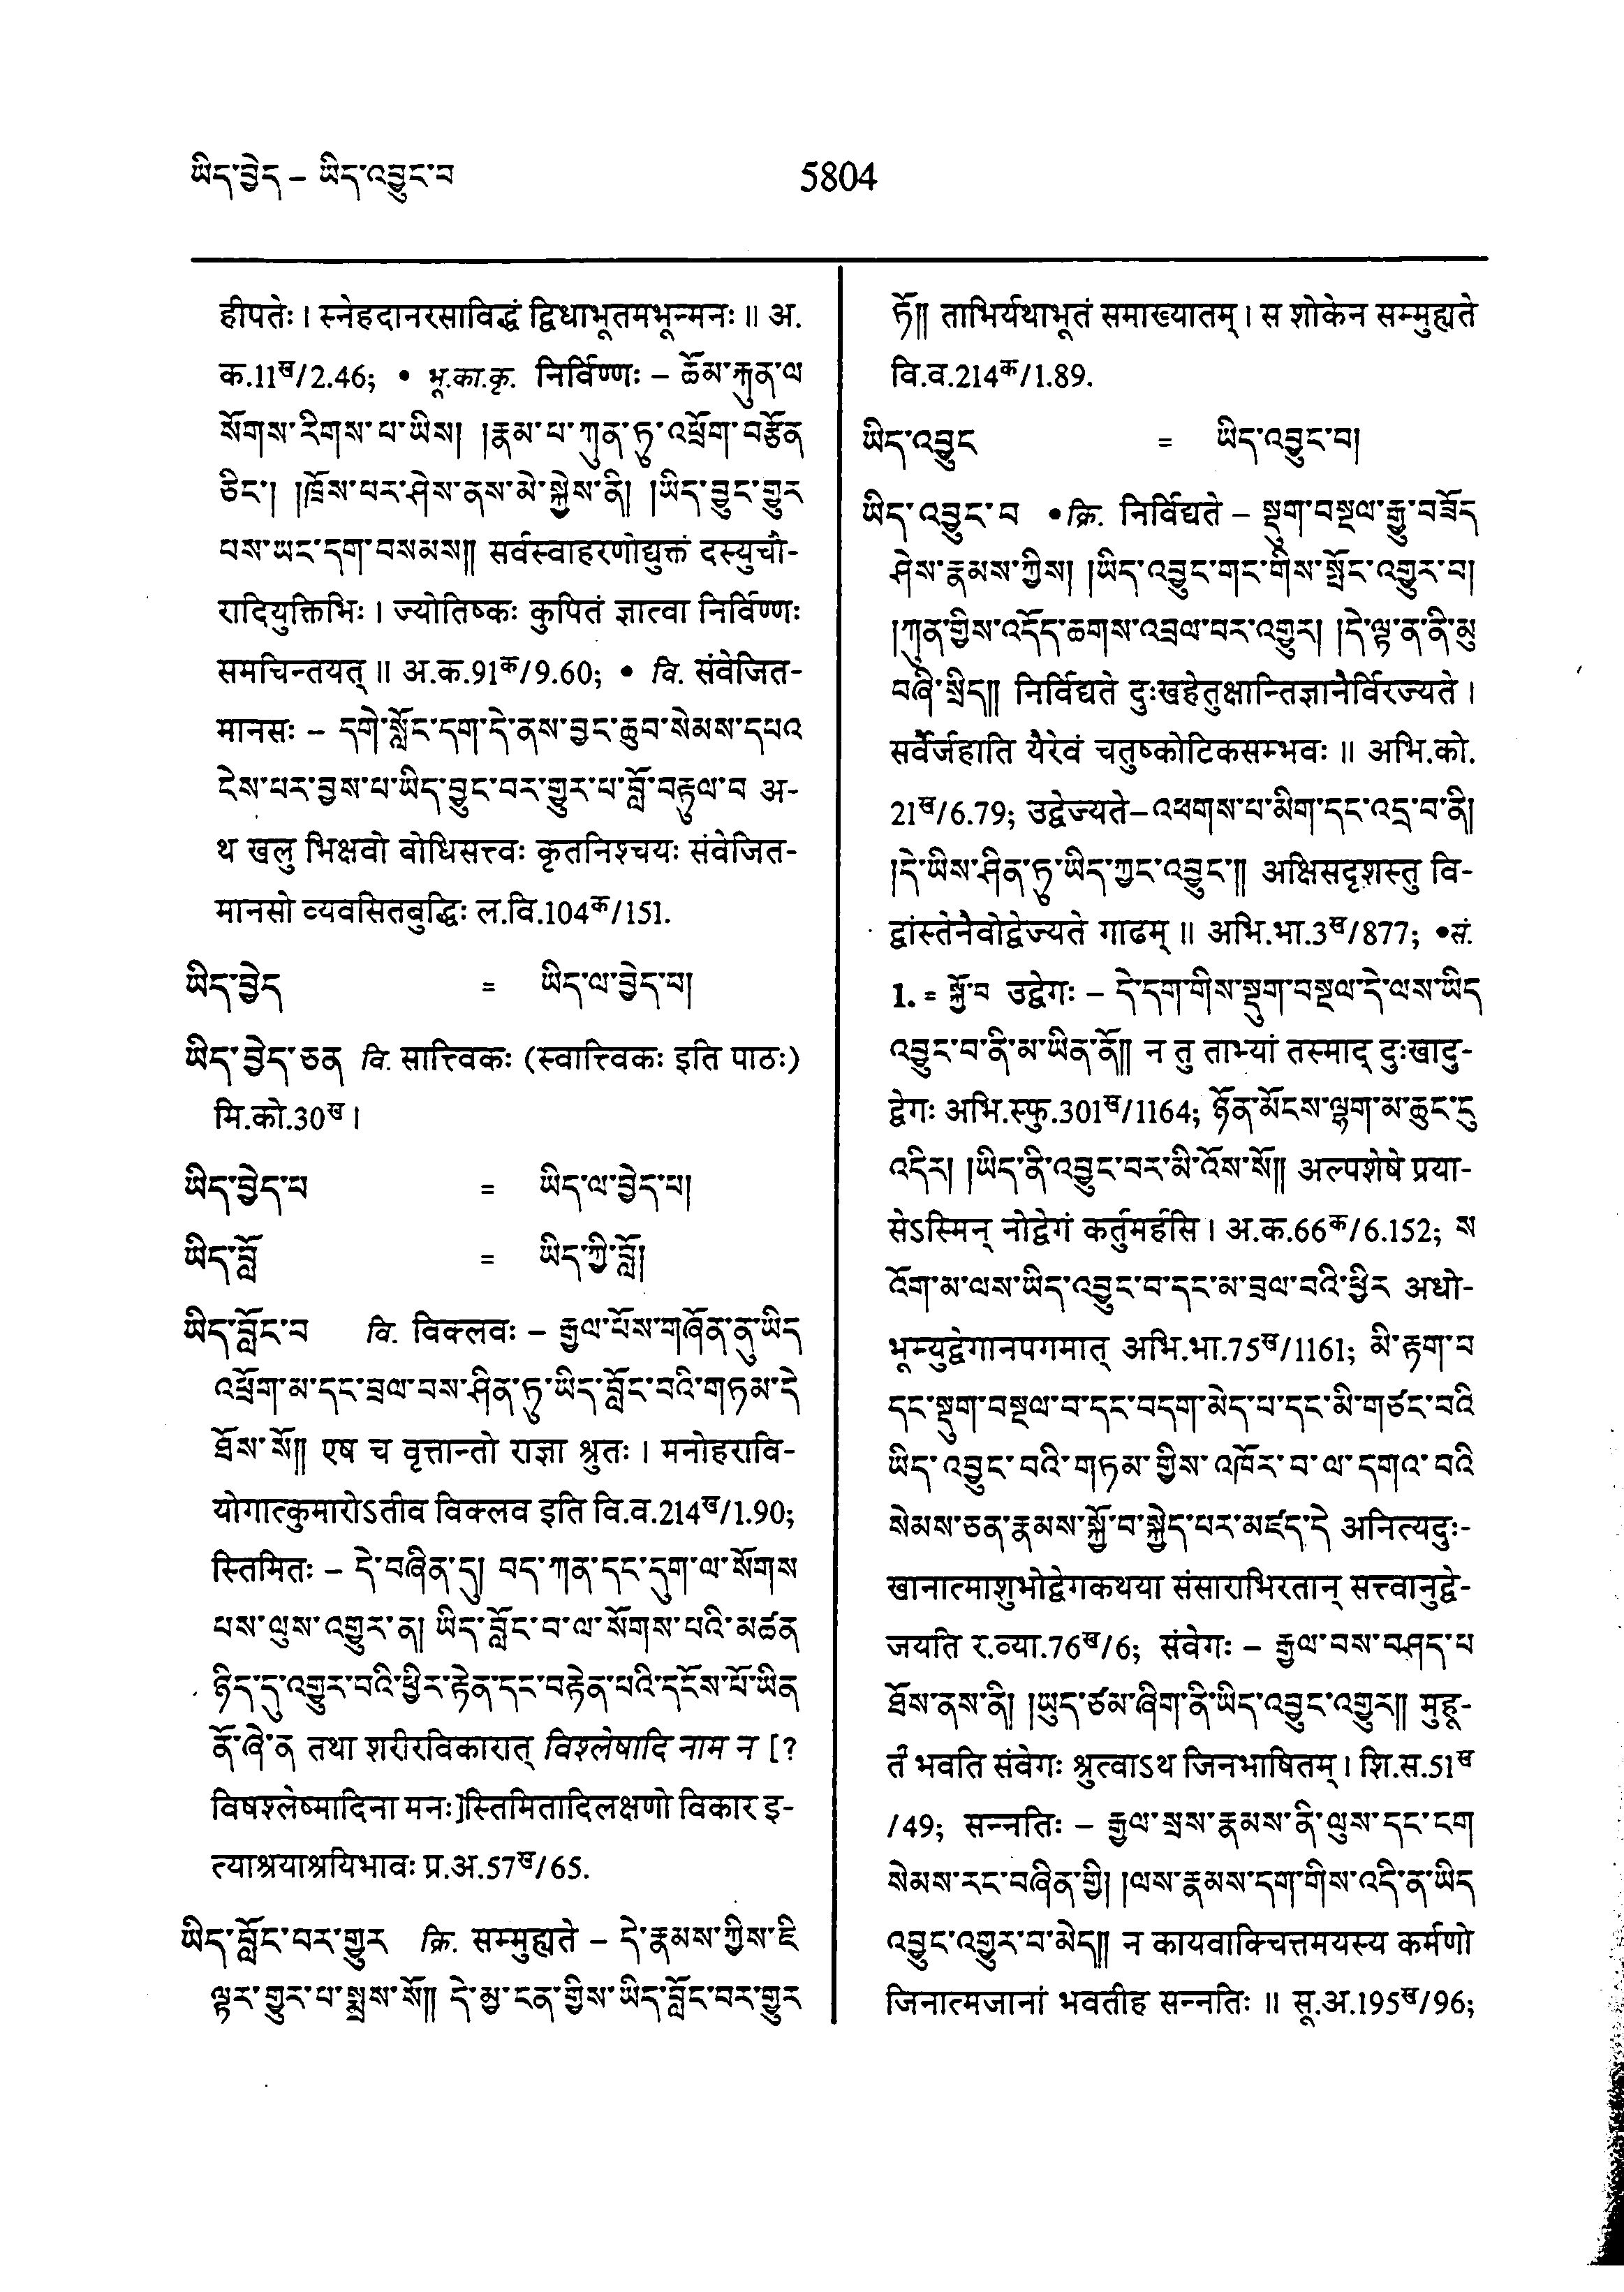 ཡིད་བྱེད – ཡིད་འབྱུང་བ
5804
हीपतेः । स्नेहदानरसाविद्धं द्विधाभूतमभून्मनः ॥ अ.
क.11ख/2.46; • भू.का.कृ. निर्विण्णः – ཆོམ་རྐུན་ལ
སོགས་རིགས་པ་ཡིས། །རྣམ་པ་ཀུན་ཏུ་འཕྲོག་བརྩོན
ཅིང་། །ཁྲོས་པར་ཤེས་ནས་མེ་སྐྱེས་ནི། །ཡིད་བྱུང་གྱུར
པས་ཡང་དག་བསམས༎ सर्वस्वाहरणोद्युक्तं दस्युचौ-
रादियुक्तिभिः । ज्योतिष्कः कुपितं ज्ञात्वा निर्विण्णः
समचिन्तयत् ॥ अ.क.91क/9.60; • वि. संवेजित-
मानसः – དགེ་སློང་དག་དེ་ནས་བྱང་ཆུབ་སེམས་དཔའ
ངེས་པར་བྱས་པ་ཡིད་བྱུང་བར་གྱུར་པ་བློ་བརྟུལ་བ अ-
थ खलु भिक्षवो बोधिसत्त्वः कृतनिश्चयः संवेजित-
मानसो व्यवसितबुद्धिः ल.वि.104क/151.
ཡིད་བྱེད = ཡིད་ལ་བྱེད་པ།
ཡིད་བྱེད་ཅན वि. सात्त्विकः (स्वात्त्विकः इति पाठः)
मि.को.30ख ।
ཡིད་བྱེད་པ = ཡིད་ལ་བྱེད་པ།
ཡིད་བློ = ཡིད་ཀྱི་བློ།
ཡིད་བློང་བ वि. विक्लवः – རྒྱལ་པོས་གཞོན་ནུ་ཡིད
འཕྲོག་མ་དང་བྲལ་བས་ཤིན་ཏུ་ཡིད་བློང་བའི་གཏམ་དེ
ཐོས་སོ༎ एष च वृत्तान्तो राज्ञा श्रुतः । मनोहरावि-
योगात्कुमारोऽतीव विक्लव इति वि.व.214ख/1.90;
स्तिमितः – དེ་བཞིན་དུ། བད་ཀན་དང་དུག་ལ་སོགས
པས་ལུས་འགྱུར་ན། ཡིད་བློང་བ་ལ་སོགས་པའི་མཚན
ཉིད་དུ་འགྱུར་བའི་ཕྱིར་རྟེན་དང་བརྟེན་པའི་དངོས་པོ་ཡིན
ནོ་ཞེ་ན तथा शरीरविकारात् विश्लेषादि नाम न [?
विषश्लेष्मादिना मनः]स्तिमितादिलक्षणो विकार इ-
त्याश्रयाश्रयिभावः प्र.अ.57ख/65.
ཡིད་བློང་བར་གྱུར क्रि. सम्मुह्यते – དེ་རྣམས་ཀྱིས་ཇི
ལྟར་གྱུར་པ་སྨྲས་སོ༎ དེ་མྱ་ངན་གྱིས་ཡིད་བློང་བར་གྱུར
ཏོ༎ ताभिर्यथाभूतं समाख्यातम् । स शोकेन सम्मुह्यते
वि.व.214क/1.89.
ཡིད་འབྱུང = ཡིད་འབྱུང་བ།
ཡིད་འབྱུང་བ • क्रि. निर्विद्यते – སྡུག་བསྔལ་རྒྱུ་བཟོད
ཤེས་རྣམས་ཀྱིས། །ཡིད་འབྱུང་གང་གིས་སྤོང་འགྱུར་བ།
།ཀུན་གྱིས་འདོད་ཆགས་འབྲལ་བར་འགྱུར། །དེ་ལྟ་ན་ནི་མུ
བཞི་སྲིད༎ निर्विद्यते दुःखहेतुक्षान्तिज्ञानैर्विरज्यते ।
सर्वैर्जहाति यैरेवं चतुष्कोटिकसम्भवः ॥ अभि.को.
21ख/6.79; उद्वेज्यते–འཕགས་པ་མིག་དང་འདྲ་བ་ནི།
།དེ་ཡིས་ཤིན་ཏུ་ཡིད་ཀྱང་འབྱུང་༎ अक्षिसदृशस्तु वि-
द्वांस्तेनैवोद्वेज्यते गाढम् ॥ अभि.भा.3ख/877; •सं.
1. = སྐྱོ་བ उद्वेगः – དེ་དག་གིས་སྡུག་བསྔལ་དེ་ལས་ཡིད
འབྱུང་བ་ནི་མ་ཡིན་ནོ༎ न तु ताभ्यां तस्माद् दुःखादु-
द्वेगः अभि.स्फु.301ख/1164; ཉོན་མོངས་ལྷག་མ་ཆུང་ངུ
འདིར། །ཡིད་ནི་འབྱུང་བར་མི་འོས་སོ༎ अल्पशेषे प्रया-
सेऽस्मिन् नोद्वेगं कर्तुमर्हसि । अ.क.66क/6.152; ས
འོག་མ་ལས་ཡིད་འབྱུང་བ་དང་མ་བྲལ་བའི་ཕྱིར अधो-
भूम्युद्वेगानपगमात् अभि.भा.75ख/1161; མི་རྟག་པ
དང་སྡུག་བསྔལ་བ་དང་བདག་མེད་པ་དང་མི་གཙང་བའི
ཡིད་འབྱུང་བའི་གཏམ་གྱིས་འཁོར་བ་ལ་དགའ་བའི
སེམས་ཅན་རྣམས་སྐྱོ་བ་སྐྱེད་པར་མཛད་དེ अनित्यदुः-
खानात्माशुभोद्वेगकथया संसाराभिरतान् सत्त्वानुद्वे-
जयति र.व्या.76ख/6; संवेगः – རྒྱལ་བས་བཤད་པ
ཐོས་ནས་ནི། །ཡུད་ཙམ་ཞིག་ནི་ཡིད་འབྱུང་འགྱུར༎ मुहू-
र्तं भवति संवेगः श्रुत्वाऽथ जिनभाषितम् । शि.स.51ख
/49; सन्नतिः – རྒྱལ་སྲས་རྣམས་ནི་ལུས་དང་ངག
སེམས་རང་བཞིན་གྱི། །ལས་རྣམས་དག་གིས་འདི་ན་ཡིད
འབྱུང་འགྱུར་བ་མེད༎ न कायवाक्चित्तमयस्य कर्मणो
जिनात्मजानां भवतीह सन्नतिः ॥ सू.अ.195ख/96;